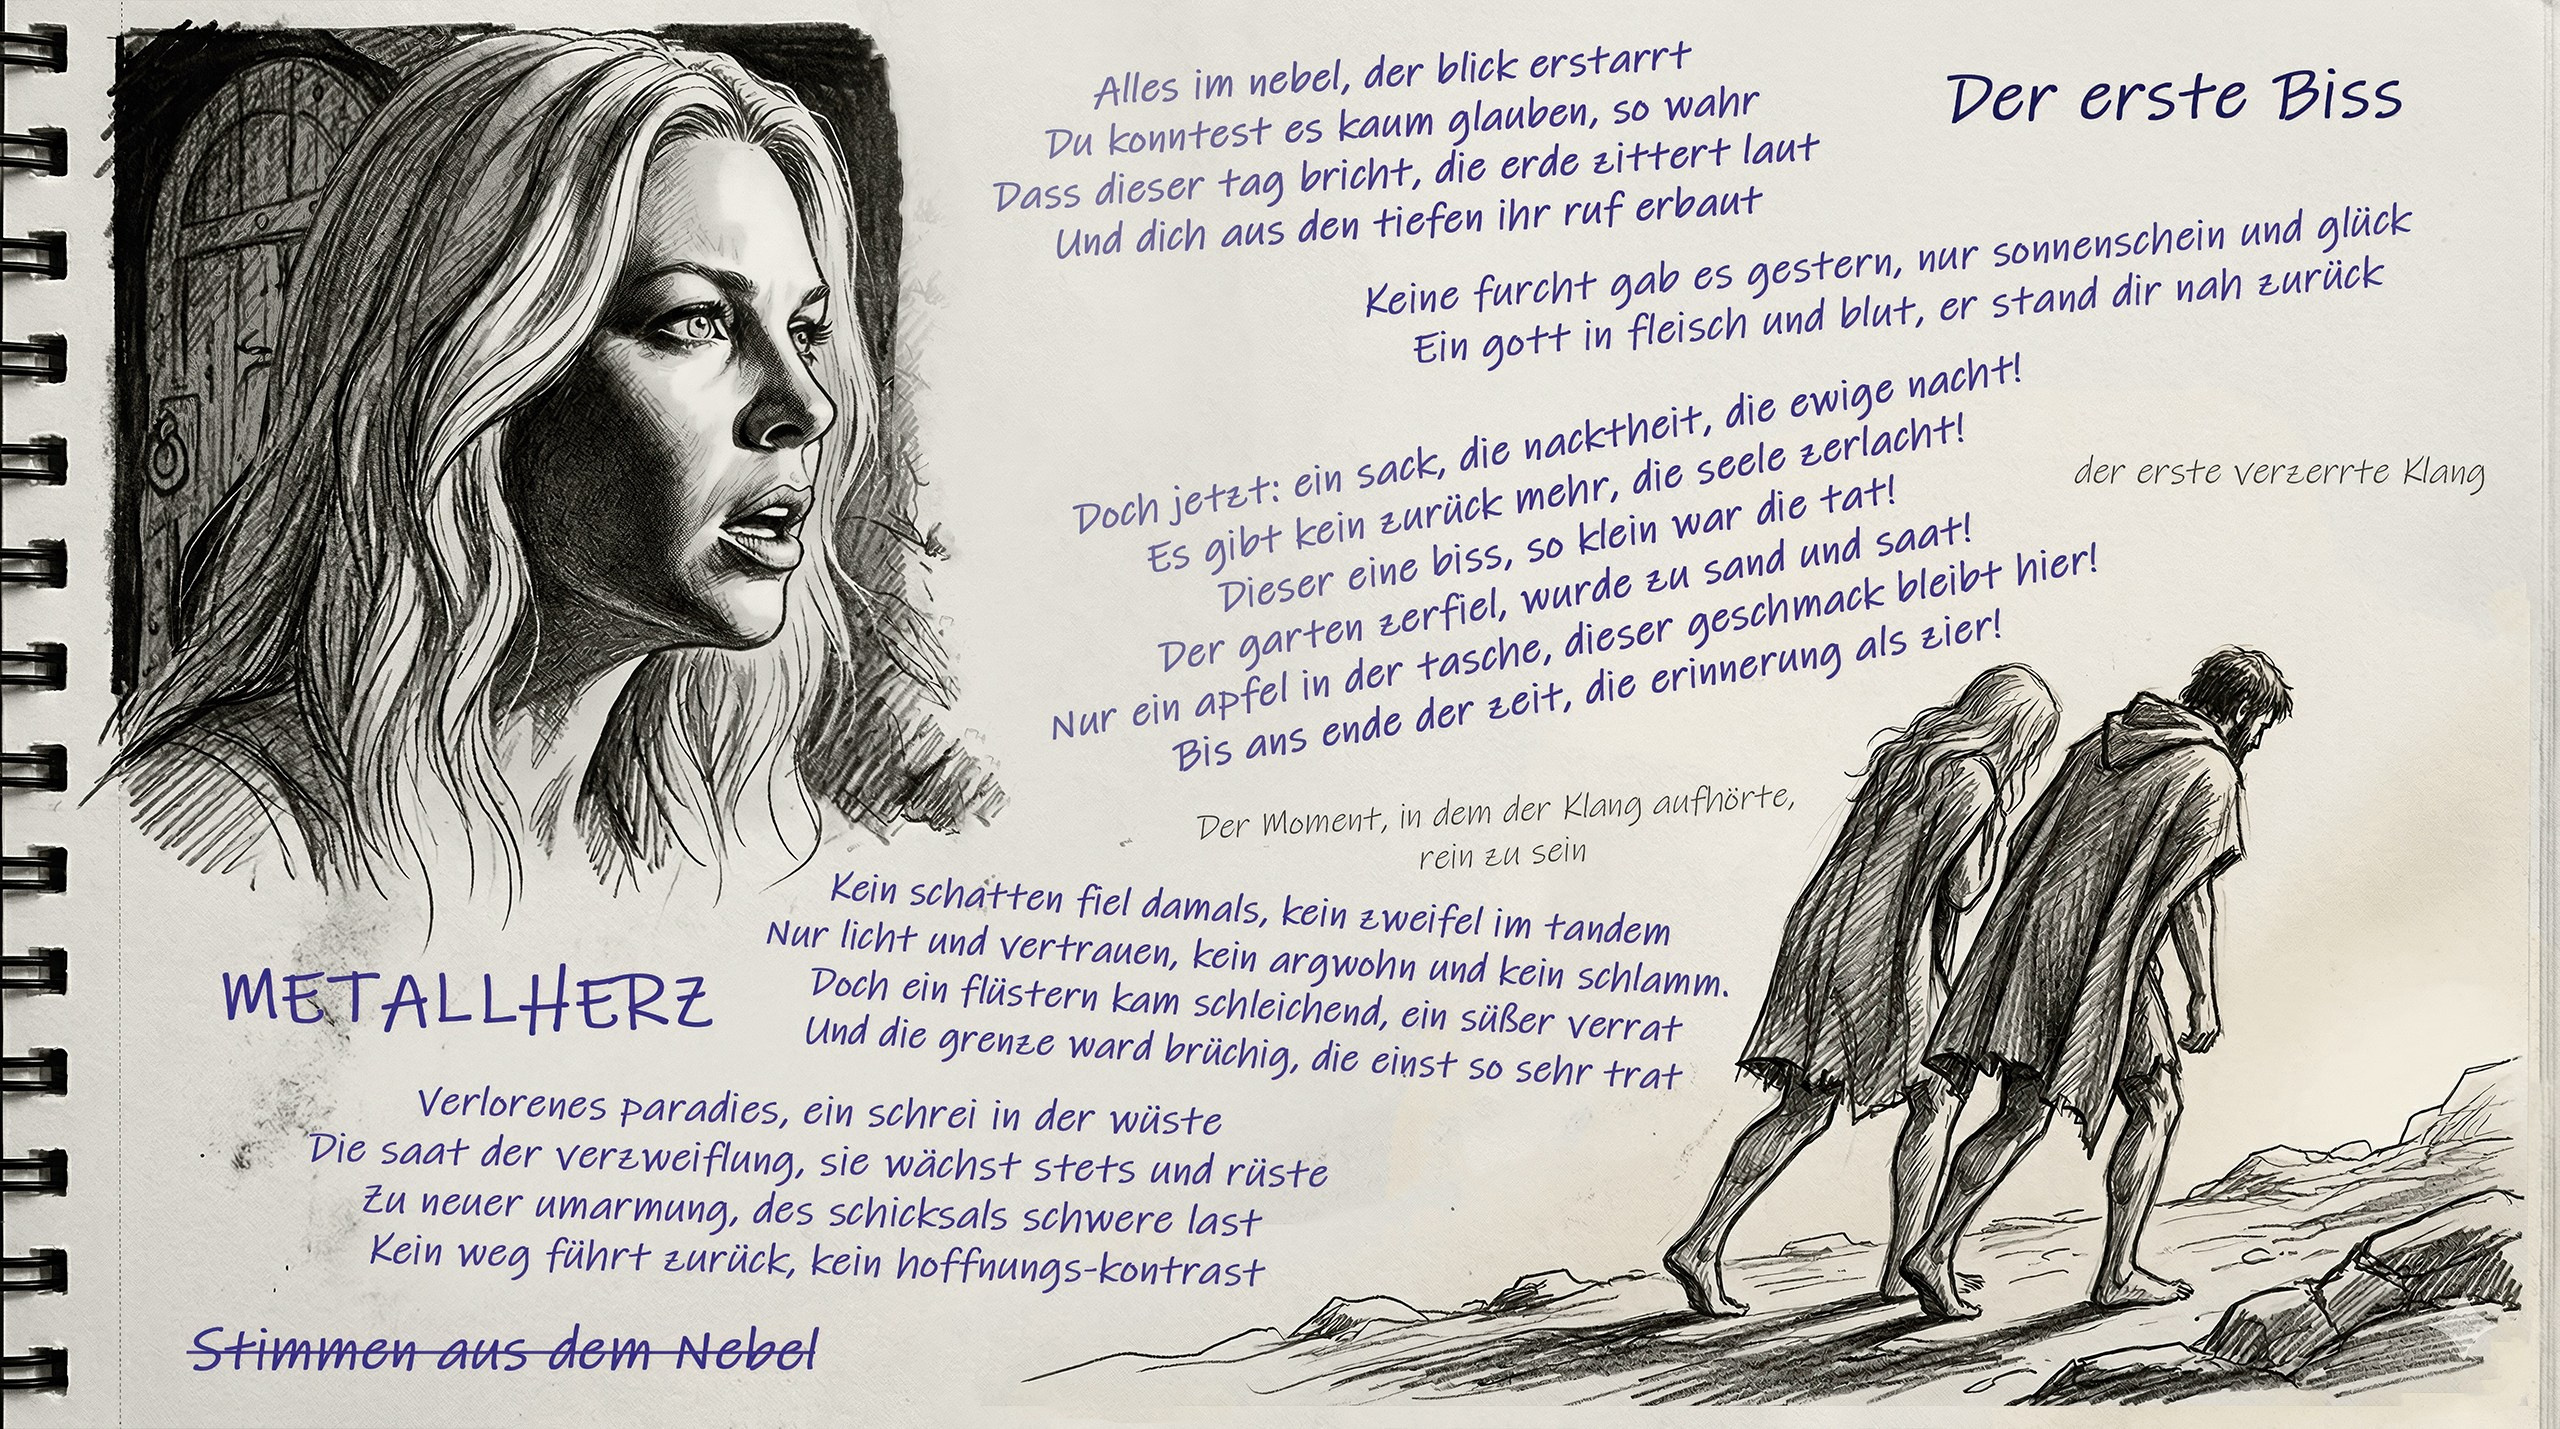 Der erste Biss
Alles im nebel, der blick erstarrt
Du konntest es kaum glauben, so wahr
Dass dieser tag bricht, die erde zittert laut
Und dich aus den tiefen ihr ruf erbaut
Keine furcht gab es gestern, nur sonnenschein und glück
Ein gott in fleisch und blut, er stand dir nah zurück
Doch jetzt: ein sack, die nacktheit, die ewige nacht!
Es gibt kein zurück mehr, die seele zerlacht!
Dieser eine biss, so klein war die tat!
Der garten zerfiel, wurde zu sand und saat!
Nur ein apfel in der tasche, dieser geschmack bleibt hier!
Bis ans ende der zeit, die erinnerung als zier!
der erste verzerrte Klang
Der Moment, in dem der Klang aufhörte,
rein zu sein
Kein schatten fiel damals, kein zweifel im tandem
Nur licht und vertrauen, kein argwohn und kein schlamm.
Doch ein flüstern kam schleichend, ein süßer verrat
Und die grenze ward brüchig, die einst so sehr trat
METALLHERZ
Verlorenes paradies, ein schrei in der wüste
Die saat der verzweiflung, sie wächst stets und rüste
Zu neuer umarmung, des schicksals schwere last
Kein weg führt zurück, kein hoffnungs-kontrast
Stimmen aus dem Nebel